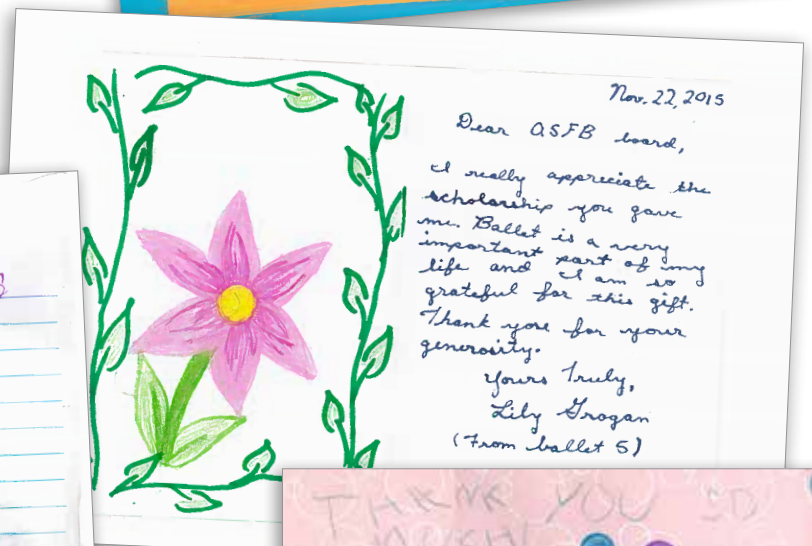 Nov. 22, 2015
Dear ASFB board,
I really appreciate the
scholarship you gave
me. Ballet is a very
important part of my
life and I am so
grateful for this gift.
Thank you for your
generosity.
Yours Truly,
Lily Grogan
(From ballet 5)
THANK YOU SO